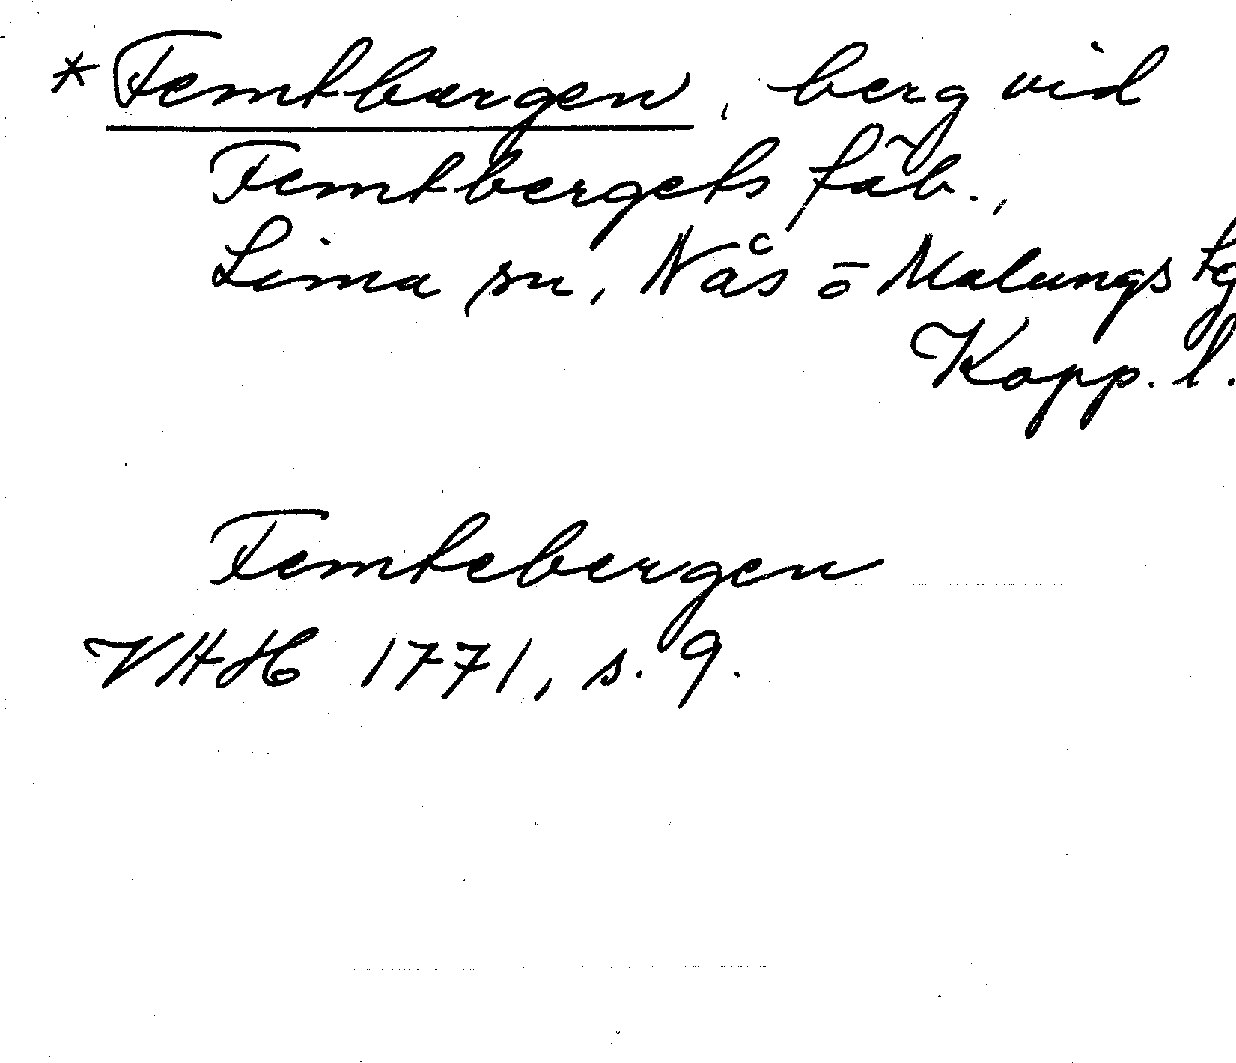 *Femtbergen, berg vid
Femtbergets fäb.,
Lima sn, Nås o Malungs tg
Kopp. l.
Femtebergen
VHH 1771, s. 9.